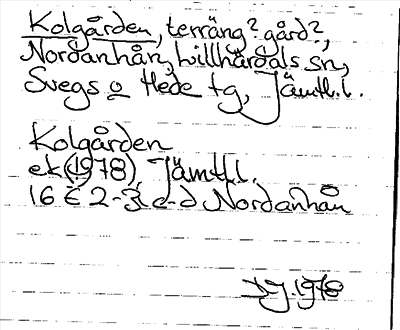 Kolgården, terräng? gård?,
Nordanhån, Lillhärdals sn,
Svegs o Hede tg, Jämtl.l.
Kolgården
ek (1978), Jämtl.l.
16 E 2-3 c-d Nordanhån
1978